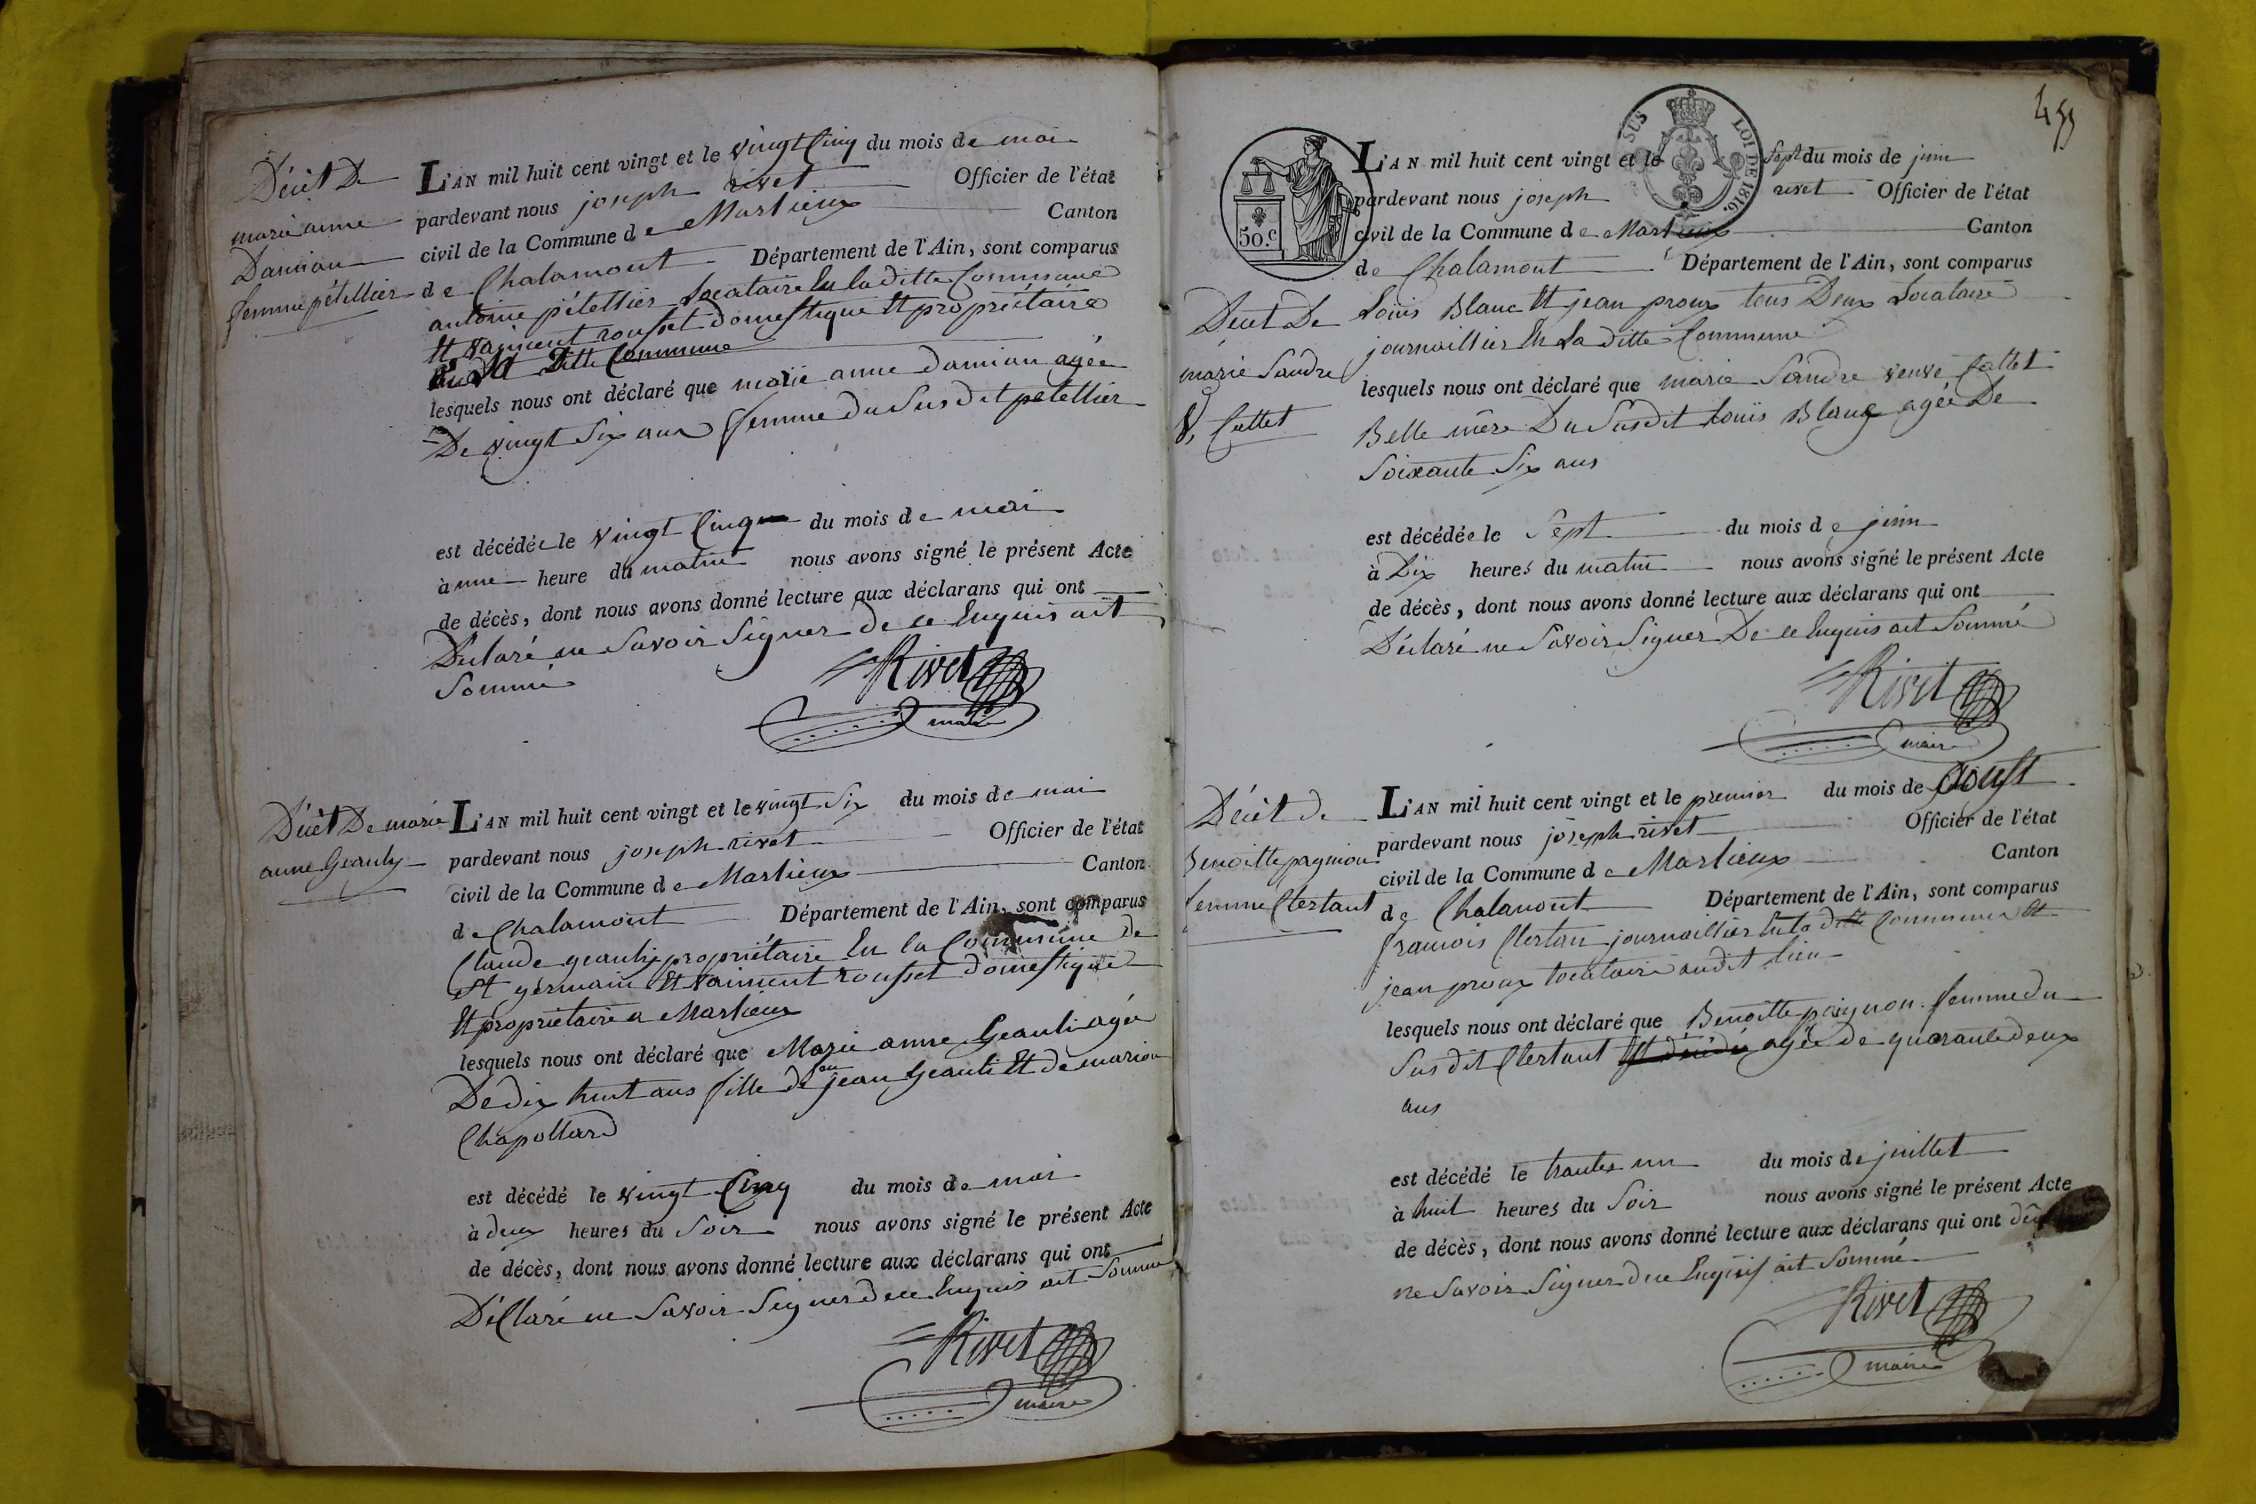 Décèt De
marie anne
Damian
femme pétellier
L'AN mil huit cent vingt et le vingt Cinq du mois de mai
pardevant nous joseph rivet Officier de l'état
civil de la Commune de Marlieux Canton
de Chalamont Département de l'Ain, sont comparus
antoine pétellier Locataire En la ditte Commune
Et vaincent rousset domestique Et propriétaire
En la ditte Commune
lesquels nous ont déclaré que marie anne damian agée
De vingt Six ans femme du Susdit petellier
est décédée le vingt Cinq du mois de mai
à une heure du matin nous avons signé le présent Acte
de décès, dont nous avons donné lecture aux déclarans qui ont
Déclaré ne Savoir Signer de ce Enquis ait
Sommé
Rivet
maire
Décèt De marie
anne Geauly
L'AN mil huit cent vingt et le vingt Six du mois de mai
pardevant nous joseph rivet Officier de l'état
civil de la Commune de Marlieux Canton
de Chalamont Département de l'Ain, sont comparus
Claude geauly propriétaire En la Commune de
St germain Et vaincent rousset domestique
Et propriétaire a Marlieux
lesquels nous ont déclaré que Marie anne Geauli agée
De dix huit ans fille de feu jean Geauli Et de marion
Chapollard
est décédé le vingt Cinq du mois de mai
à deux heures du Soir nous avons signé le présent Acte
de décès, dont nous avons donné lecture aux déclarans qui ont
Déclaré ne Savoir Signer de ce Enquis ait Sommé
Rivet
maire
SUS LOI DE 1816.
50.c
L'AN mil huit cent vingt et le Sept du mois de juin
pardevant nous joseph rivet Officier de l'état
civil de la Commune de Marlieux Canton
de Chalamont Département de l'Ain, sont comparus
Décèt De
marie Sandre
V. Collet
Louis Blanc Et jean proux tous Deux Locataire
journaillier En La ditte Commune
lesquels nous ont déclaré que marie Sandre veuve Collet
Belle mère Du Susdit Louis Blanc agée De
Soixante Six ans
est décédée le Sept du mois de juin
à Dix heures du matin nous avons signé le présent Acte
de décès, dont nous avons donné lecture aux déclarans qui ont
Déclaré ne Savoir Signer De ce Enquis ait Sommé
Rivet
maire
Décèt de
Benoitte pagnion
femme Clertant
L'AN mil huit cent vingt et le premier du mois de Aoust
pardevant nous joseph rivet Officier de l'état
civil de la Commune de Marlieux Canton
de Chalamont Département de l'Ain, sont comparus
francois Clertan journaillier En la ditte Commune Et
jean proux locataire audit lieu
lesquels nous ont déclaré que Benoitte paignon femme du
Susdit Clertant Est décédée agée de quarante deux
ans
est décédé le trante un du mois de juillet
à huit heures du Soir nous avons signé le présent Acte
de décès, dont nous avons donné lecture aux déclarans qui ont
ne Savoir Signer de ce Enquis ait Sommé
Rivet
maire